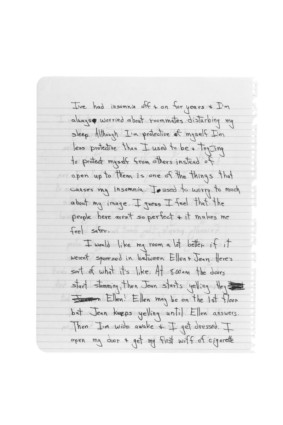 I've had insomnia off & on for years & I'm
always worried about roommates disturbing my
sleep. Although I'm protective of myself I'm
less protective than I used to be & Trying
to protect myself from others instead of
open up to them is one of the things that
causes my insomnia, I used to worry to much
about my image. I guess I feel that the
people here aren't so perfect & it makes me
feel safer.
I would like my room a lot better if it
wasnt squeezed in between Ellen & Jean. Here's
sort of what its like. At 5:00am the doors
start slamming, then Jean starts yelling. Hey
Ellen! Ellen may be on the 1st floor
but Jean keeps yelling until Ellen answers.
Then I'm wide awake & I get dressed I
open my door & get my first wiff of cigarette